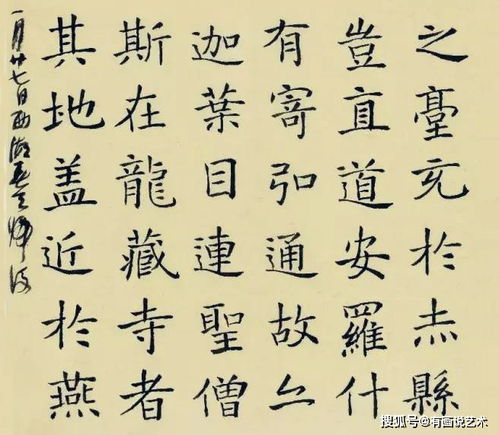 之臺充於赤縣
豈直道安羅什
有寄弘通故亦
迦葉目連聖僧
斯在龍藏寺者
其地盖近於燕
一月廿七日西湖
搜狐号@有画说艺术